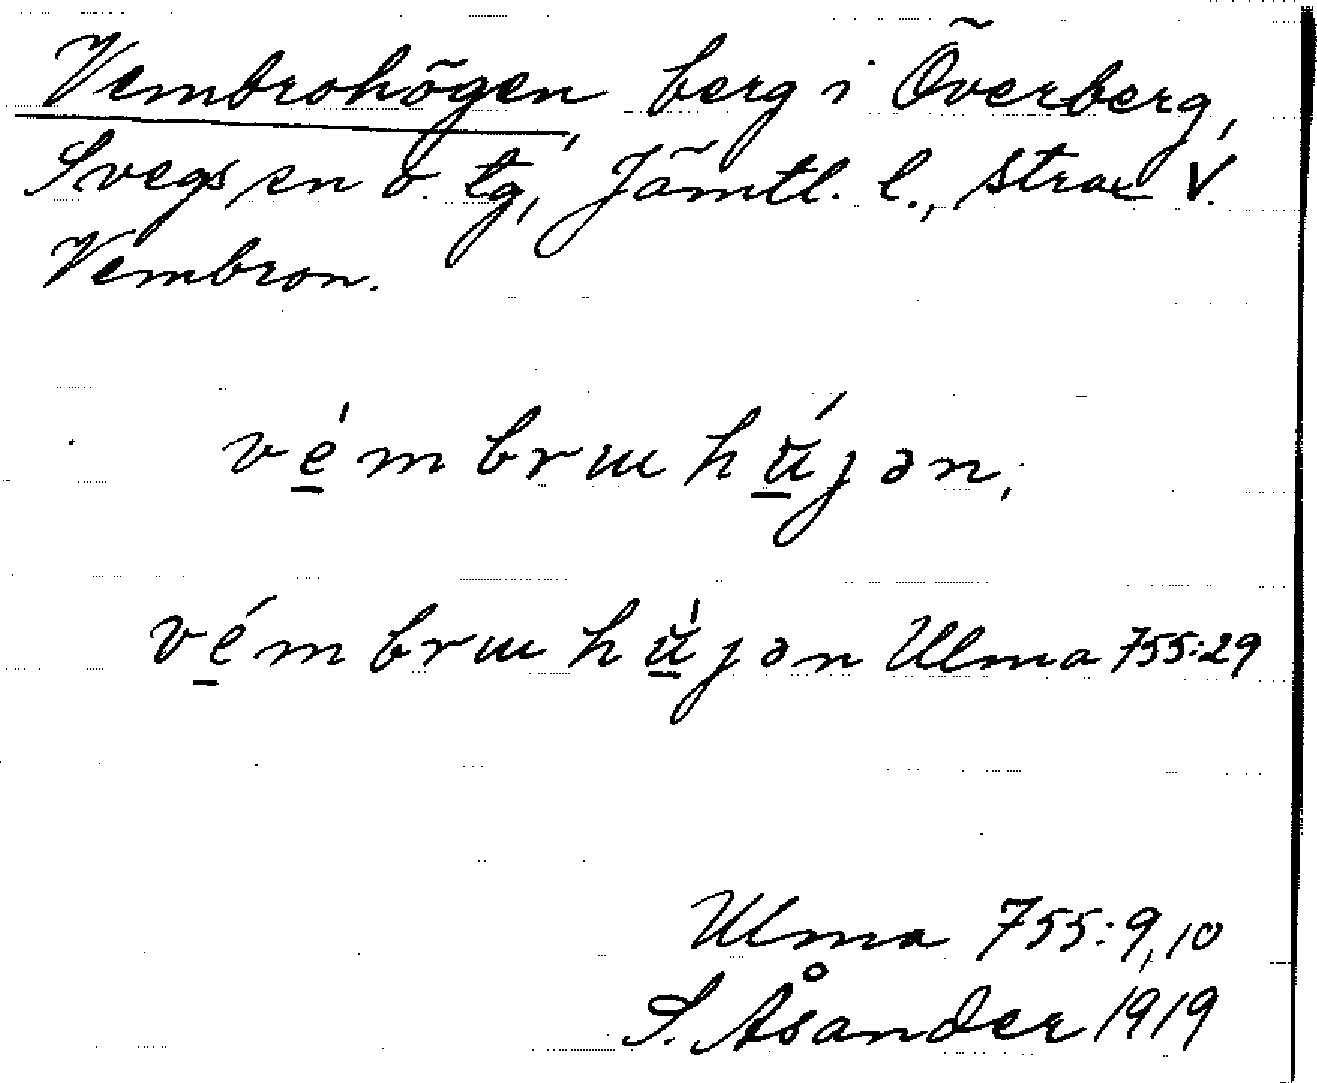 Vembrohögen, berg i Överberg,
Svegs sn o. tg, Jämtl. l., strax V.
Vembron.
vémbrɯhújən,
vémbrɯhújən Ulma 755:29
Ulma 755:9,10
S. Åsander 1919